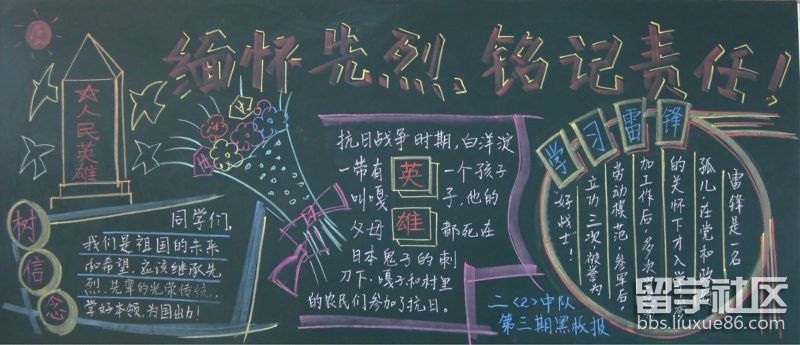 缅怀先烈、铭记责任!
人民英雄
树信念
同学们,
我们是祖国的未来
和希望,应该继承先
烈、先辈的光荣传统,
学好本领,为国出力!
抗日战争时期,白洋淀
一带有 一个孩子
叫嘎 子,他的
父母 都死在
日本鬼子的刺
刀下,嘎子和村里
的农民们参加了抗日。
英雄
学习雷锋
雷锋是一名
孤儿,在党和政府
的关怀下才入学、参
加工作后,多次
劳动模范,参军后,
立功三次,被誉为
“好战士”!
二〈2〉中队
第三期黑板报
留学社区
bbs.liuxue86.com